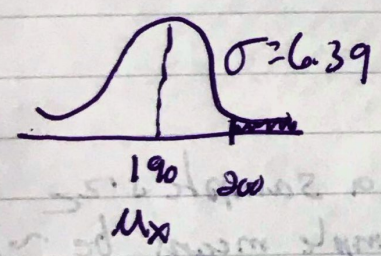 σ=6.39
190 200
μx